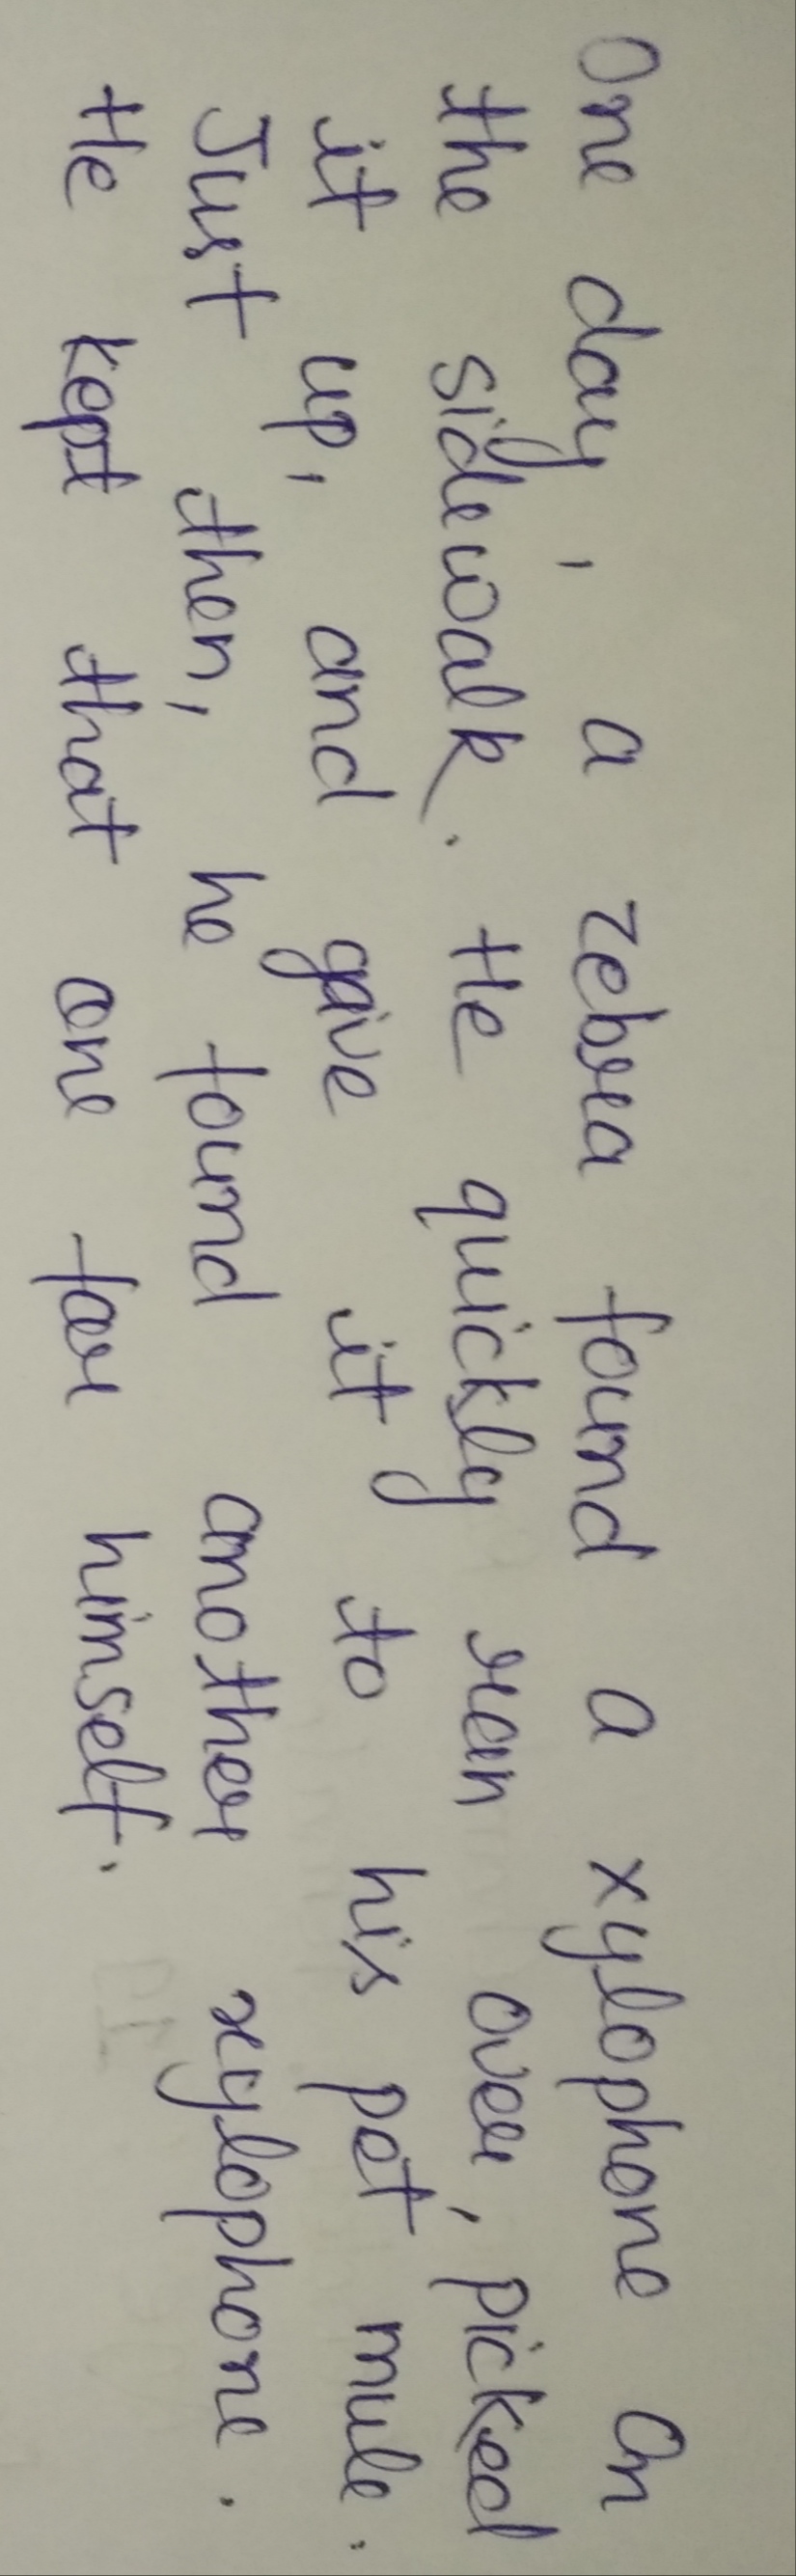 One day, a zebra found a xylophone On
the sidewalk. He quickly ran over, picked
it up, and gave it to his pet mule.
Just then, he found another xylophone.
He kept that one for himself.